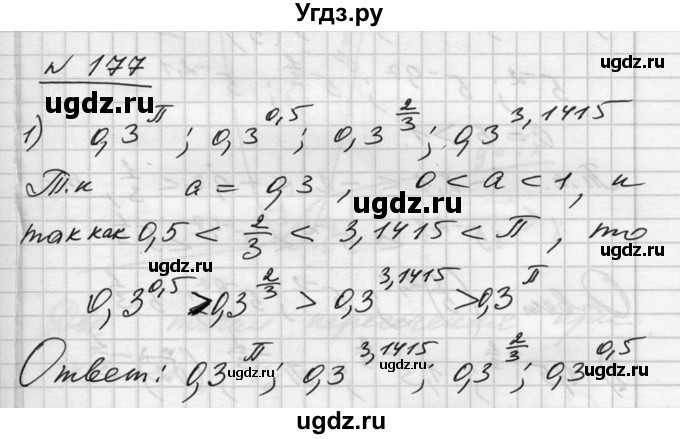 Угдз.ру
N 177
ugdz.ru ugdz.ru
1) 0,3^П ; 0,3^0,5 ; 0,3^2/3 ; 0,3^3,1415
Т.к a = 0,3 , 0 < a < 1, и
ugdz.ru ugdz.ru
так как 0,5 < 2/3 < 3,1415 < П , то
0,3^0,5 > 0,3^2/3 > 0,3^3,1415 > 0,3^П
ugdz.ru ugdz.ru
Ответ: 0,3^П ; 0,3^3,1415 ; 0,3^2/3 ; 0,3^0,5
ugdz.ru ugdz.ru
ugdz.ru